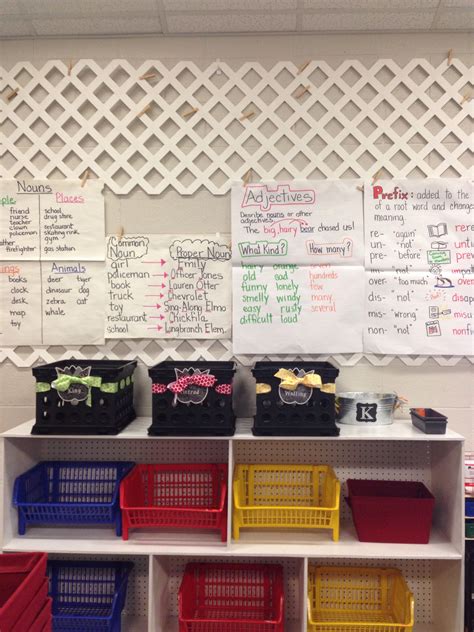 Nouns
Places
friend
nurse
teacher
clown
policeman
firefighter
school
drug store
restaurant
skating rink
gym
gas station
Animals
books
clock
map
toy
deer
dinosaur
zebra
whale
cat
Common
Noun
girl
policeman
book
truck
toy
restaurant
school
Proper Noun
Emily
Officer Jones
Lauren Otter
Chevrolet
Sing-Along Elmo
Chickfila
Longbranch Elem.
Adjectives
Describe nouns or other
adjectives.
The big, hairy bear chased us!
What Kind?
How many?
hard orange
old far
funny lonely
smelly windy
easy rusty
difficult loud
ten
hundreds
few
several
many
Prefix: added to the
of a root word and changes
meaning.
re- "again"
un- "not"
pre- "before"
over- "too much"
dis- "not"
mis- "wrong"
non- "not"
K